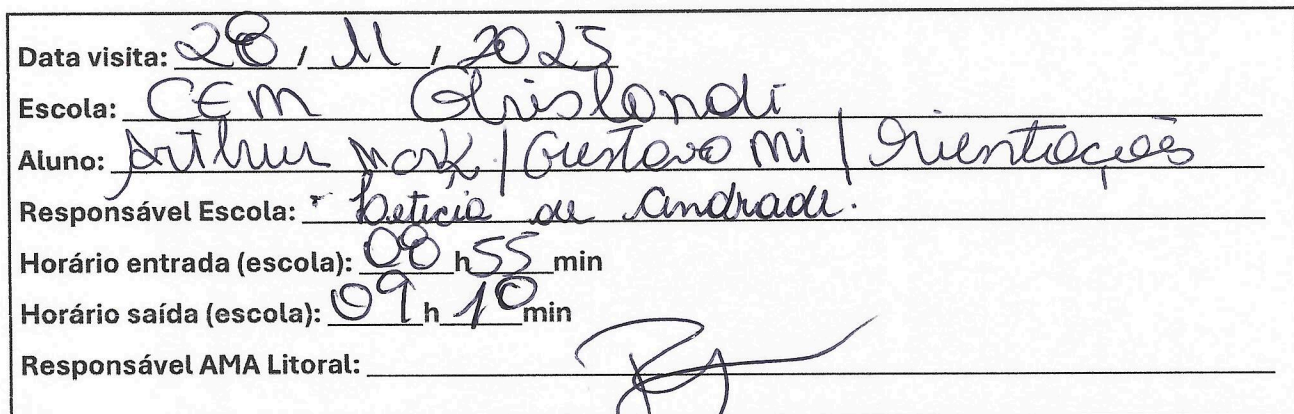 Data visita: 28 / 11 / 2025
Escola: CEM Ghislandi
Aluno: Arthur Mark. | Gustavo Mi | Orientações
Responsável Escola: Leticia de Andrade.
Horário entrada (escola): 08 h 55 min
Horário saída (escola): 09 h 10 min
Responsável AMA Litoral: